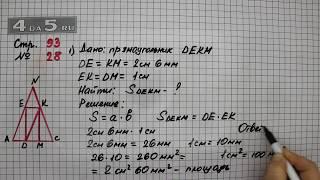 4DA5.RU
Стр. 93
№ 28
1) Дано: прямоугольник DEKM
DE = KM = 2см 6мм
EK = DM = 1см
Найти: S DEKM - ?
Решение:
S = a · b S DEKM = DE · EK
2см 6мм · 1см
2см 6мм = 26мм 1см = 10мм
26 · 10 = 260 мм² 1см² = 100 м
= 2 см² 60 мм² - площадь
Отве
N
E K
A D M C